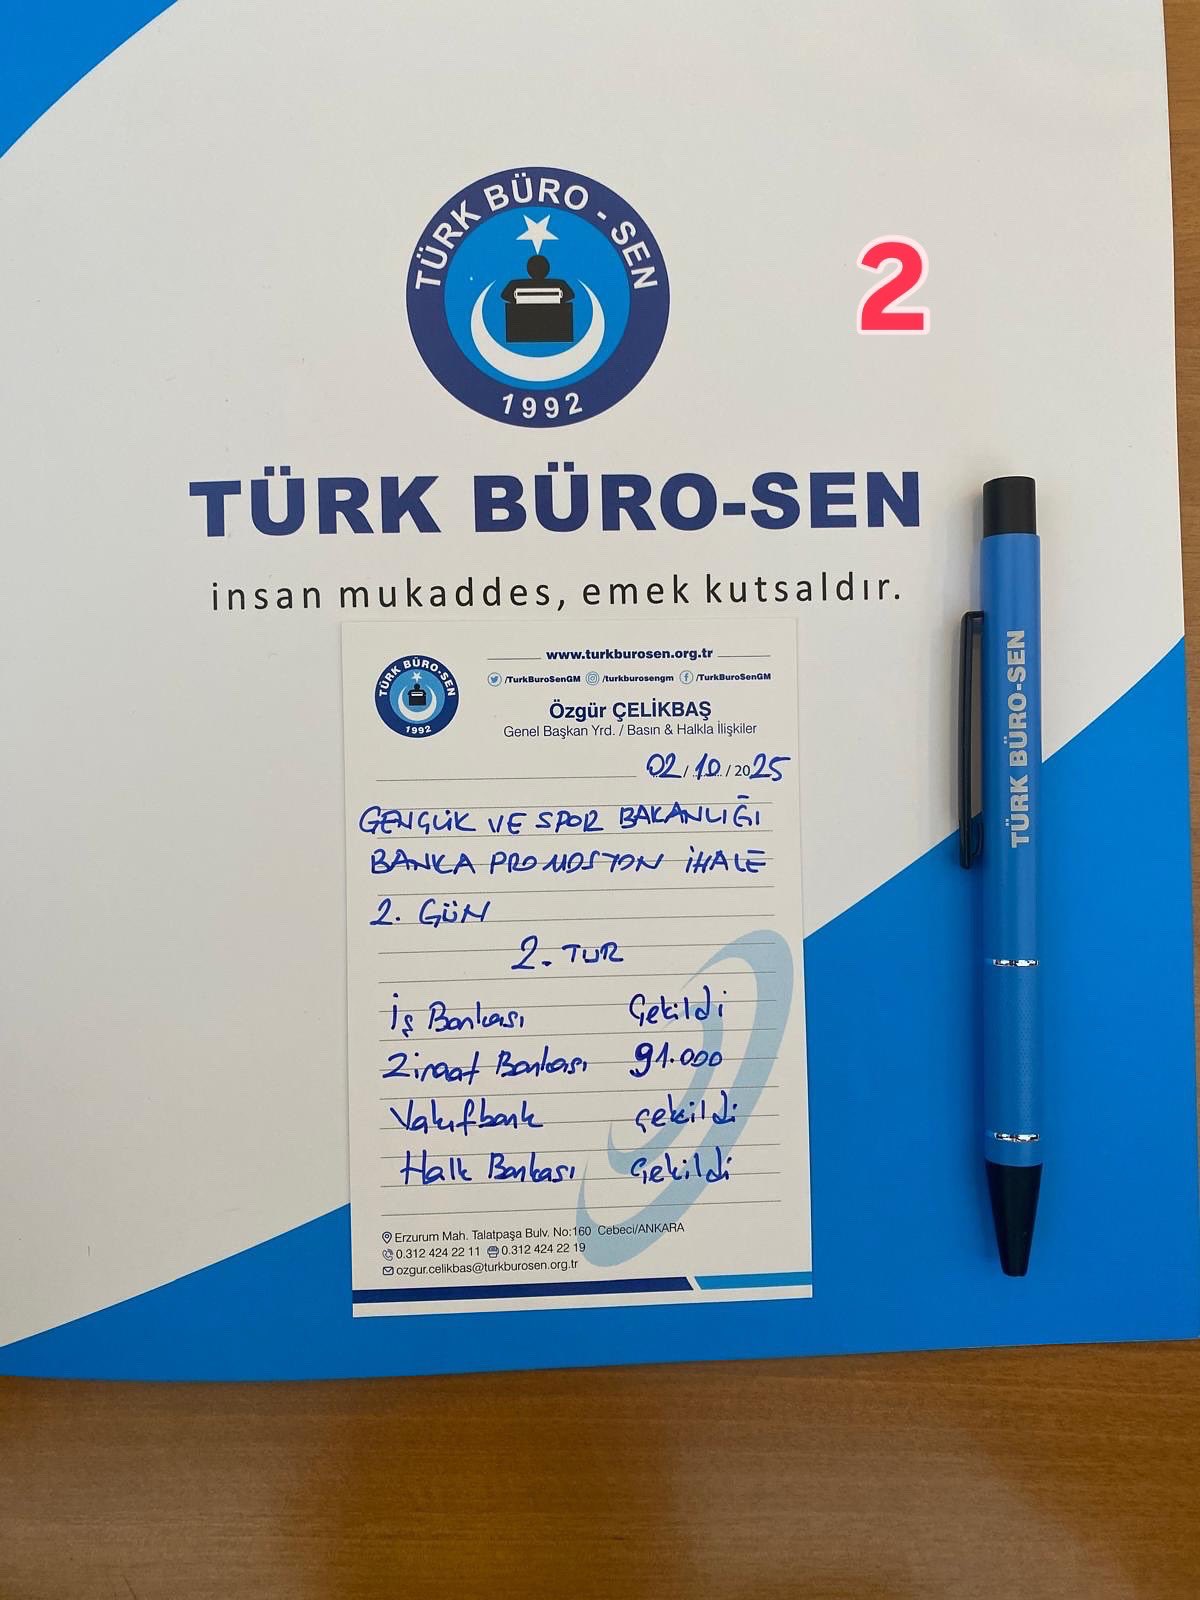 TÜRK BÜRO - SEN
1992
2
TÜRK BÜRO-SEN
insan mukaddes, emek kutsaldır.
TÜRK BÜRO-SEN
TÜRK BÜRO-SEN
1992
www.turkburosen.org.tr
/TurkBuroSenGM /turkburosengm /TurkBuroSenGM
Özgür ÇELİKBAŞ
Genel Başkan Yrd. / Basın & Halkla İlişkiler
02 / 10 / 2025
GENÇLİK VE SPOR BAKANLIĞI
BANKA PROMOSYON İHALE
2. GÜN
2. TUR
İş Bankası Çekildi
Ziraat Bankası 91.000
Vakıfbank çekildi
Halk Bankası Çekildi
Erzurum Mah. Talatpaşa Bulv. No:160 Cebeci/ANKARA
0.312 424 22 11 0.312 424 22 19
ozgur.celikbas@turkburosen.org.tr